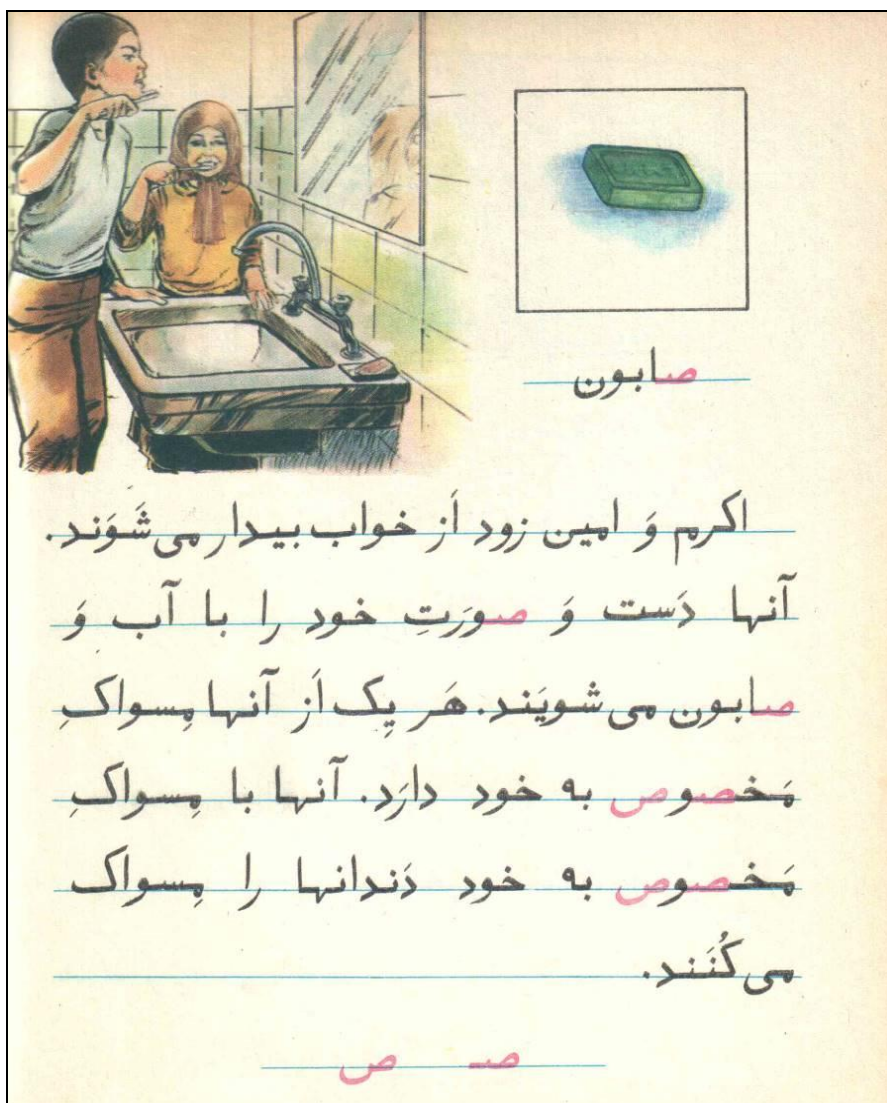 صابون
اکرم وَ امین زود اَز خواب بیدار می‌شَوَند.
آنها دَست وَ صورَتِ خود را با آب وَ
صابون می‌شویَند. هَر یِک اَز آنها مِسواکِ
مَخصوص به خود دارَد. آنها با مِسواکِ
مَخصوص به خود دَندانها را مِسواک
می‌کُنَند.
صـ ص